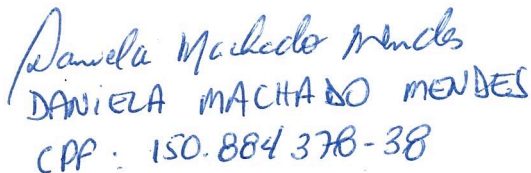 Daniela Machado Mendes
DANIELA MACHADO MENDES
CPF: 150.884 378-38